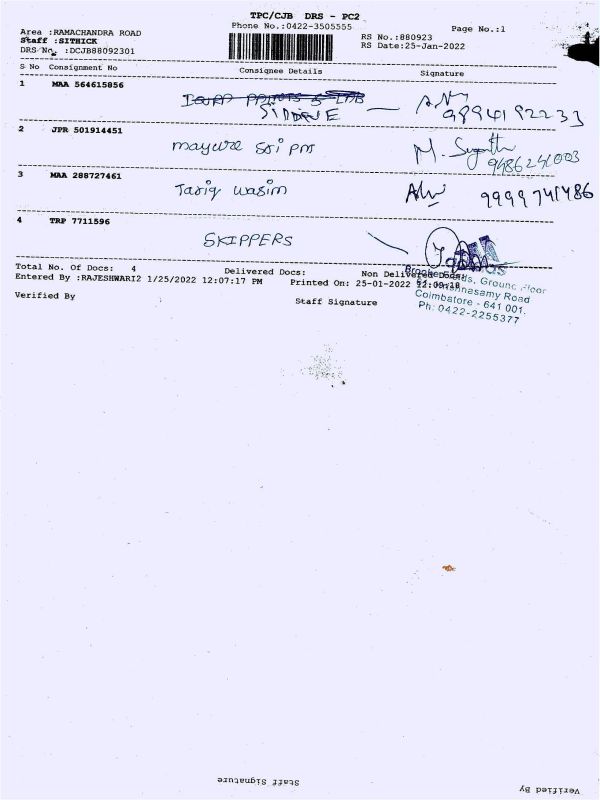 TPC/CJB DRS - PC2
Phone No.:0422-3505555
Page No.:1
Area :RAMACHANDRA ROAD
Staff :SITHICK
DRS/No. :DCJB88092301
RS No.:880923
RS Date:25-Jan-2022
S No Consignment No Consignee Details Signature
1 MAA 564615856
9894192233
2 JPR 501914451 mayura Sri pm M.
9486241003
3 MAA 288727461 Tariq wasim 9999741486
4 TRP 7711596 SKIPPERS
Total No. Of Docs: 4 Delivered Docs: Non Delivered Docs:
Entered By :RAJESHWARI2 1/25/2022 12:07:17 PM Printed On: 25-01-2022 12:09:18
Verified By Staff Signature
Ground Floor
Krishnasamy Road
Coimbatore - 641 001.
Ph: 0422-2255377
Staff Signature
Verified By